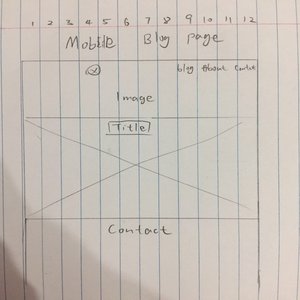 1 2 3 4 5 6 7 8 9 10 11 12
Mobile Blog page
blog About Contact
Image
Title
Contact